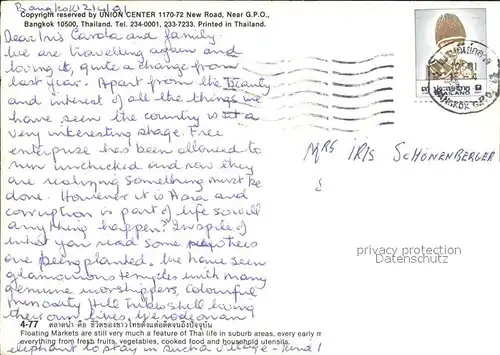 Bangkok 12/4/91
Copyright reserved by UNION CENTER 1170-72 New Road, Near G.P.O.,
Bangkok 10500, Thailand. Tel. 234-0001, 233-7233. Printed in Thailand.
Dear Iris Carola and family.
We are travelling again and
loving it, quite a change from
last year. Apart from the beauty
and interest of all the things we
have seen the country is at a
very interesting stage. Free
enterprise has been allowed to
run unchecked and now they
are realizing something must be
done. However it is Asia and
corruption is part of life so will
anything happen? In spite of
what you read some new trees
are being planted. We have seen
glamourous temples with many
genuine worshippers, colourful
minority Hill Tribes still living
their own lives, we rode on an
4-77 ตลาดน้ำ คือ ชีวิตของชาวไทยตั้งแต่อดีตจนถึงปัจจุบัน
Floating Markets are still very much a feature of Thai life in suburb areas, every early m
everything from fresh fruits, vegetables, cooked food and household utensils.
elephant to stay in such a village - Kind
ประเทศไทย
THAILAND
BANGKOK G.P.O.
MRS IRIS SCHÖNENBERGER
privacy protection
COMMUNITY